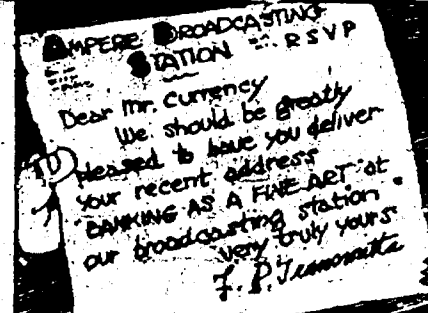 AMPERE BROADCASTING
STATION R S V P
Dear Mr. Currency
We should be greatly
pleased to have you deliver
your recent address
"BANKING AS A FINE ART" at
our broadcasting station.
Very truly yours
F. P.